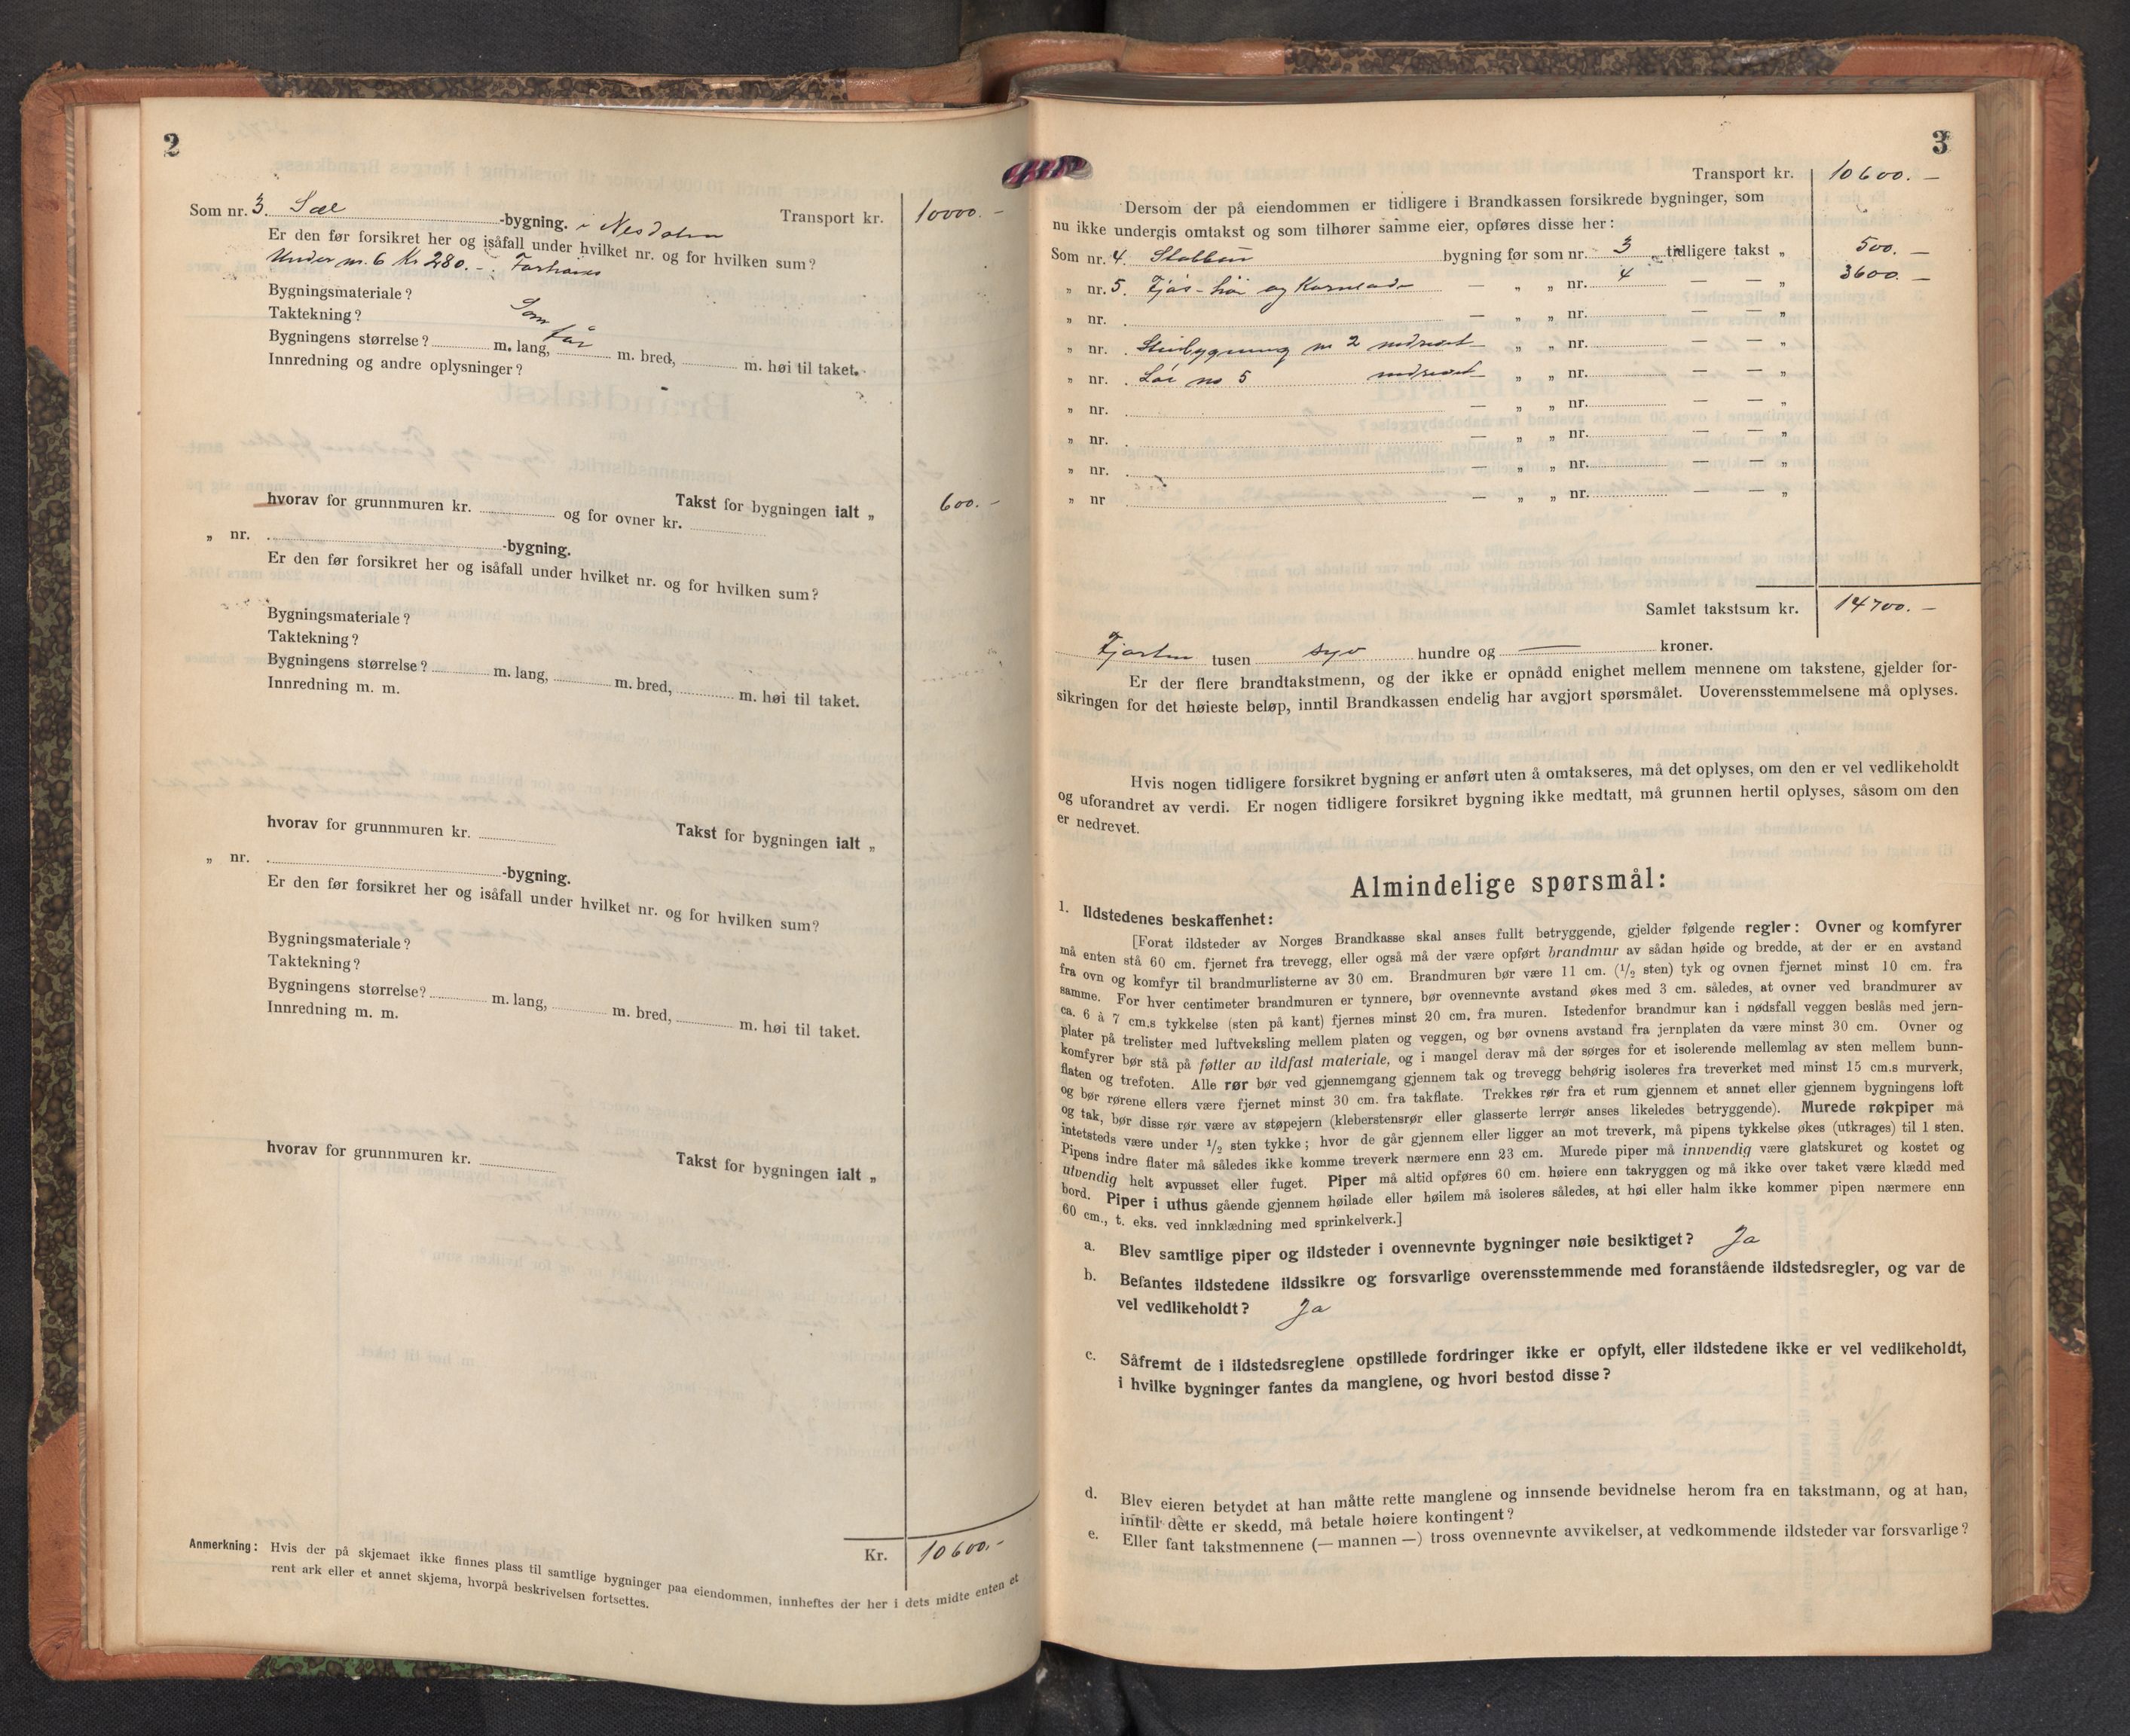 2
Som nr. 3. Sæl -bygning. i Nesdalen Transport kr. 10000.-
Er den før forsikret her og isåfall under hvilket nr. og for hvilken sum?
Under nr. 6 Kr 280.-
Bygningsmateriale?
Taktekning? Som før
Bygningens størrelse? m. lang, m. bred, m. høi til taket.
Innredning og andre oplysninger?
Takst for bygningen ialt „ 600.-
hvorav for grunnmuren kr. og for ovner kr.
„ nr. -bygning.
Er den før forsikret her og isåfall under hvilket nr. og for hvilken sum?
Bygningsmateriale?
Taktekning?
Bygningens størrelse? m. lang, m. bred, m. høi til taket.
Innredning m. m.
Takst for bygningen ialt „
hvorav for grunnmuren kr.
„ nr. -bygning.
Er den før forsikret her og isåfall under hvilket nr. og for hvilken sum?
Bygningsmateriale?
Taktekning?
Bygningens størrelse? m. lang, m. bred, m. høi til taket.
Innredning m. m.
Takst for bygningen ialt „
hvorav for grunnmuren kr.
Kr. 10600.-
Anmerkning: Hvis der på skjemaet ikke finnes plass til samtlige bygninger paa eiendommen, innheftes der her i dets midte enten et
rent ark eller et annet skjema, hvorpå beskrivelsen fortsettes.
3
Transport kr. 10600.-
Dersom der på eiendommen er tidligere i Brandkassen forsikrede bygninger, som
nu ikke undergis omtakst og som tilhører samme eier, opføres disse her:
Som nr. 4. Stabbur bygning før som nr. 3 tidligere takst „ 500.-
„ nr. 5. Fjøs- høi og Kornlade — „ „ nr. 4 — — „ 3600.-
„ nr. — „ „ nr. — — „
„ nr. nr 2 nedrevet „ „ nr. — — „
„ nr. Løe no 5 nedrevet „ „ nr. — — „
„ nr. — „ „ nr. — — „
„ nr. — „ „ nr. — — „
„ nr. — „ „ nr. — — „
„ nr — „ „ nr. — — „
Samlet takstsum kr. 14700.-
Fjorten tusen syv hundre og — kroner.
Er der flere brandtakstmenn, og der ikke er opnådd enighet mellem mennene om takstene, gjelder for-
sikringen for det høieste beløp, inntil Brandkassen endelig har avgjort spørsmålet. Uoverensstemmelsene må oplyses.
Hvis nogen tidligere forsikret bygning er anført uten å omtakseres, må det oplyses, om den er vel vedlikeholdt
og uforandret av verdi. Er nogen tidligere forsikret bygning ikke medtatt, må grunnen hertil oplyses, såsom om den
er nedrevet.
Almindelige spørsmål:
1. Ildstedenes beskaffenhet:
[Forat ildsteder av Norges Brandkasse skal anses fullt betryggende, gjelder følgende regler: Ovner og komfyrer
må enten stå 60 cm. fjernet fra trevegg, eller også må der være opført brandmur av sådan høide og bredde, at der er en avstand
fra ovn og komfyr til brandmurlisterne av 30 cm. Brandmuren bør være 11 cm. (1/2 sten) tyk og ovnen fjernet minst 10 cm. fra
samme. For hver centimeter brandmuren er tynnere, bør ovennevnte avstand økes med 3 cm. således, at ovner ved brandmurer av
ca. 6 à 7 cm.s tykkelse (sten på kant) fjernes minst 20 cm. fra muren. Istedenfor brandmur kan i nødsfall veggen beslås med jern-
plater på trelister med luftveksling mellem platen og veggen, og bør ovnens avstand fra jernplaten da være minst 30 cm. Ovner og
komfyrer bør stå på føtter av ildfast materiale, og i mangel derav må der sørges for et isolerende mellemlag av sten mellem bunn-
flaten og trefoten. Alle rør bør ved gjennemgang gjennem tak og trevegg behørig isoleres fra treverket med minst 15 cm.s murverk,
og bør rørene ellers være fjernet minst 30 cm. fra takflate. Trekkes rør fra et rum gjennem et annet eller gjennem bygningens loft
og tak, bør disse rør være av støpejern (kleberstensrør eller glasserte lerrør anses likeledes betryggende). Murede røkpiper må
intetsteds være under 1/2 sten tykke; hvor de går gjennem eller ligger an mot treverk, må pipens tykkelse økes (utkrages) til 1 sten.
Pipens indre flater må således ikke komme treverk nærmere enn 23 cm. Murede piper må innvendig være glatskuret og kostet og
utvendig helt avpusset eller fuget. Piper må altid opføres 60 cm. høiere enn takryggen og må ikke over taket være klædd med
bord. Piper i uthus gående gjennem høilade eller høilem må isoleres således, at høi eller halm ikke kommer pipen nærmere enn
60 cm., t. eks. ved innklædning med sprinkelverk.]
a. Blev samtlige piper og ildsteder i ovennevnte bygninger nøie besiktiget? Ja
b. Befantes ildstedene ildssikre og forsvarlige overensstemmende med foranstående ildstedsregler, og var de
vel vedlikeholdt? Ja
c. Såfremt de i ildstedsreglene opstillede fordringer ikke er opfylt, eller ildstedene ikke er vel vedlikeholdt,
i hvilke bygninger fantes da manglene, og hvori bestod disse?
d. Blev eieren betydet at han måtte rette manglene og innsende bevidnelse herom fra en takstmann, og at han,
inntil dette er skedd, må betale høiere kontingent?
e. Eller fant takstmennene (— mannen —) tross ovennevnte avvikelser, at vedkommende ildsteder var forsvarlige?